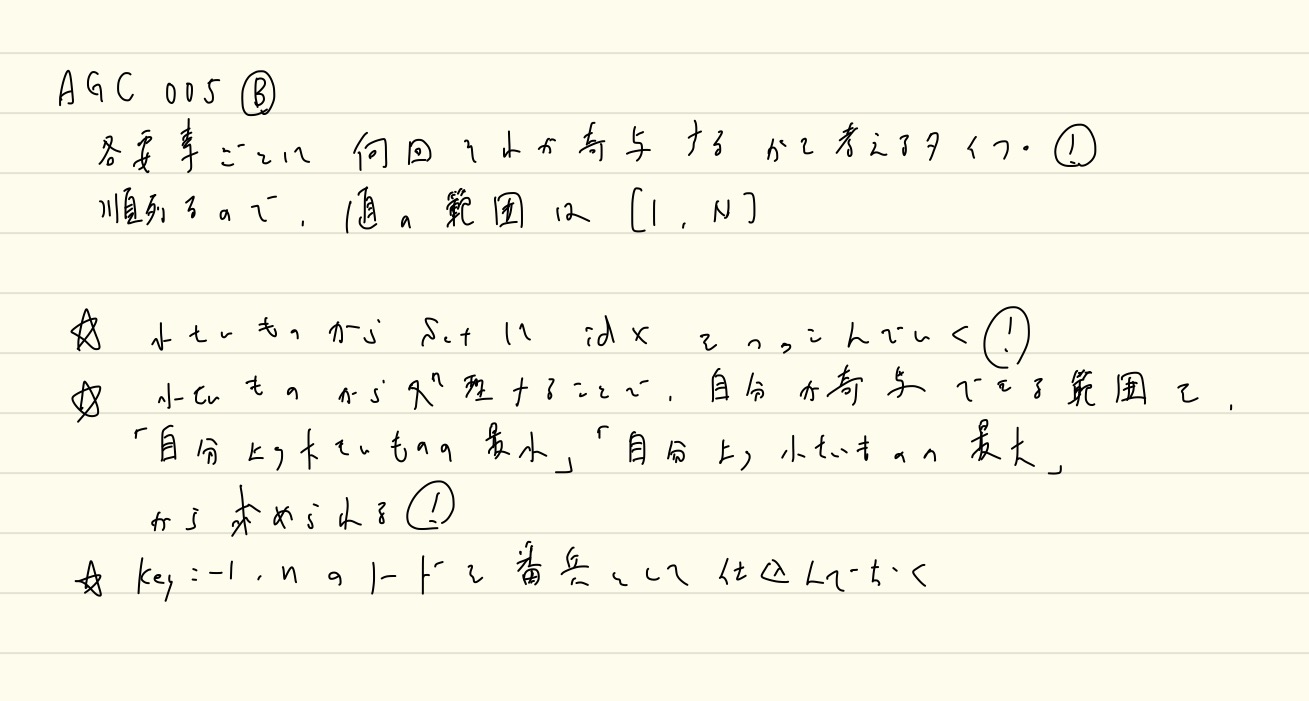 AGC 005 Ⓑ
各要素ごとに 何回それが寄与するかで考えるタイプ. !
順列なので, 値の範囲は [1, N]
☆ 小さいものから Set に idx をつっこんでいく !
☆ 小さいものから処理することで, 自分が寄与できる範囲を,
「自分より大きいものの最小」「自分より小さいものの最大」
から求められる !
☆ key = -1, n のノードを番兵として仕込んでおく